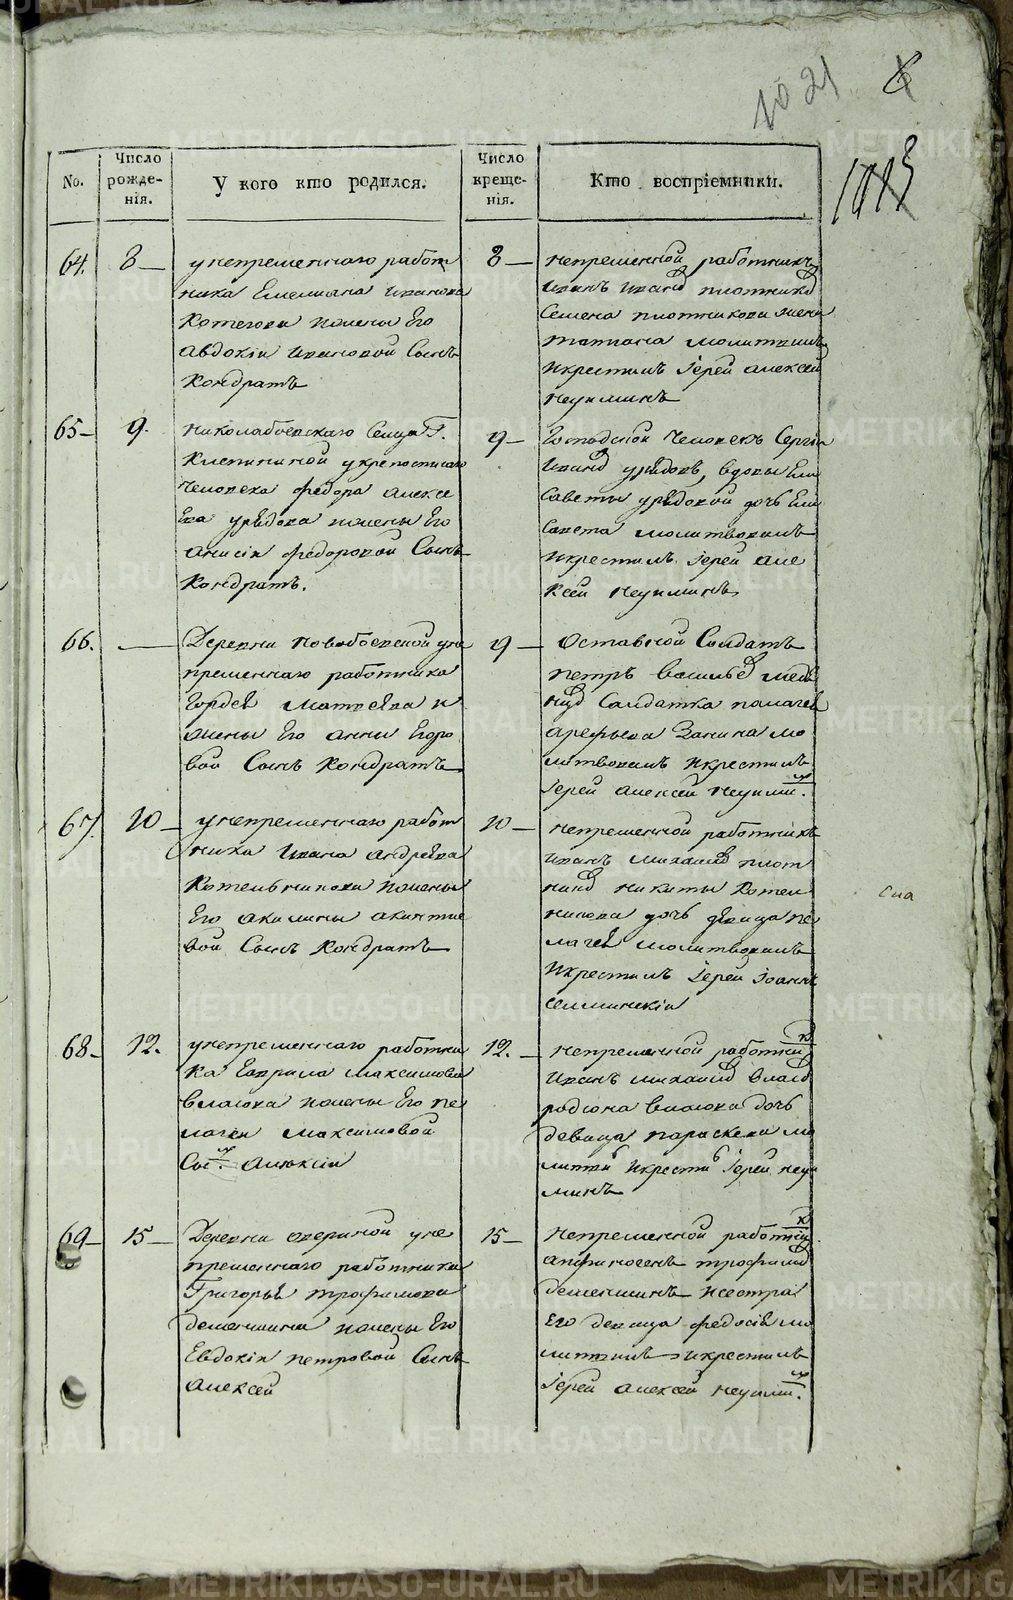 10 21
1013
No.
Число рожде-нія.
У кого кто родился.
Число креще-нія.
Кто воспріемники.
64.
8
унепременнаго работ
ника Емельяна Иванова
Котегова ижены Его
Авдокіи Ивановой Сынъ
Кондратъ
8
непременной работникъ
Иванъ Иванов плотников
Семена плотникова жена
татиана молитвилъ
икрестилъ Іерей Алексей
Неуиминъ
65
9.
николабоевскаго Селца Г.
Клепининой укрепостнаго
человека федора алексе
Ева ижены Его
анисіи федоровой Сынъ
Кондратъ.
9
Господской человекъ Сергіи
Иванов вдовы Ели
Саветы дочь Ели
Савета молитвовалъ
икрестилъ Іерей але
ксей Неуиминъ
66.
Деревни Новобоевской уне
пременнаго работника
Гордея Матвеева и
жены Его Анны Егоро
вой Сынъ Кондратъ
9
Оставной Солдатъ
петръ васильев
Салдатка
арефьева Занина мо
литвовалъ икрестилъ
Іерей алексей Неуими.
67
10
унепременнаго работ
ника Ивана андреева
Котельникова ижены
Его акилины акинтие
вой Сынъ Кондратъ
10
непременной работникъ
Иванъ михайлов плот
ников никиты Котел
никова дочь девица пе
лагея молитвовалъ
икрестилъ Іерей Іоаннъ
селминскіи
Сма
68
12.
унепременнаго работни
ка Гаврила максимова
власова ижены Его пе
лагеи максимовой
Сы. алексіи
12.
непременной работни
Иванъ михайлов власов
родіона власова дочь
девица параскева мо
литви икрести Іерей неуи
минъ
69
15
Деревни озериной уне
пременнаго работника
Григорья трофимова
деменшина ижены Его
Евдокіи петровой Сынъ
алексей
15
Непременной работни
анфиногенъ трофимов
деменшинъ исестра
Его девица федосія мо
литвилъ икрестилъ
Іерей алексей неуими.
METRIKI.GASO-URAL.RU